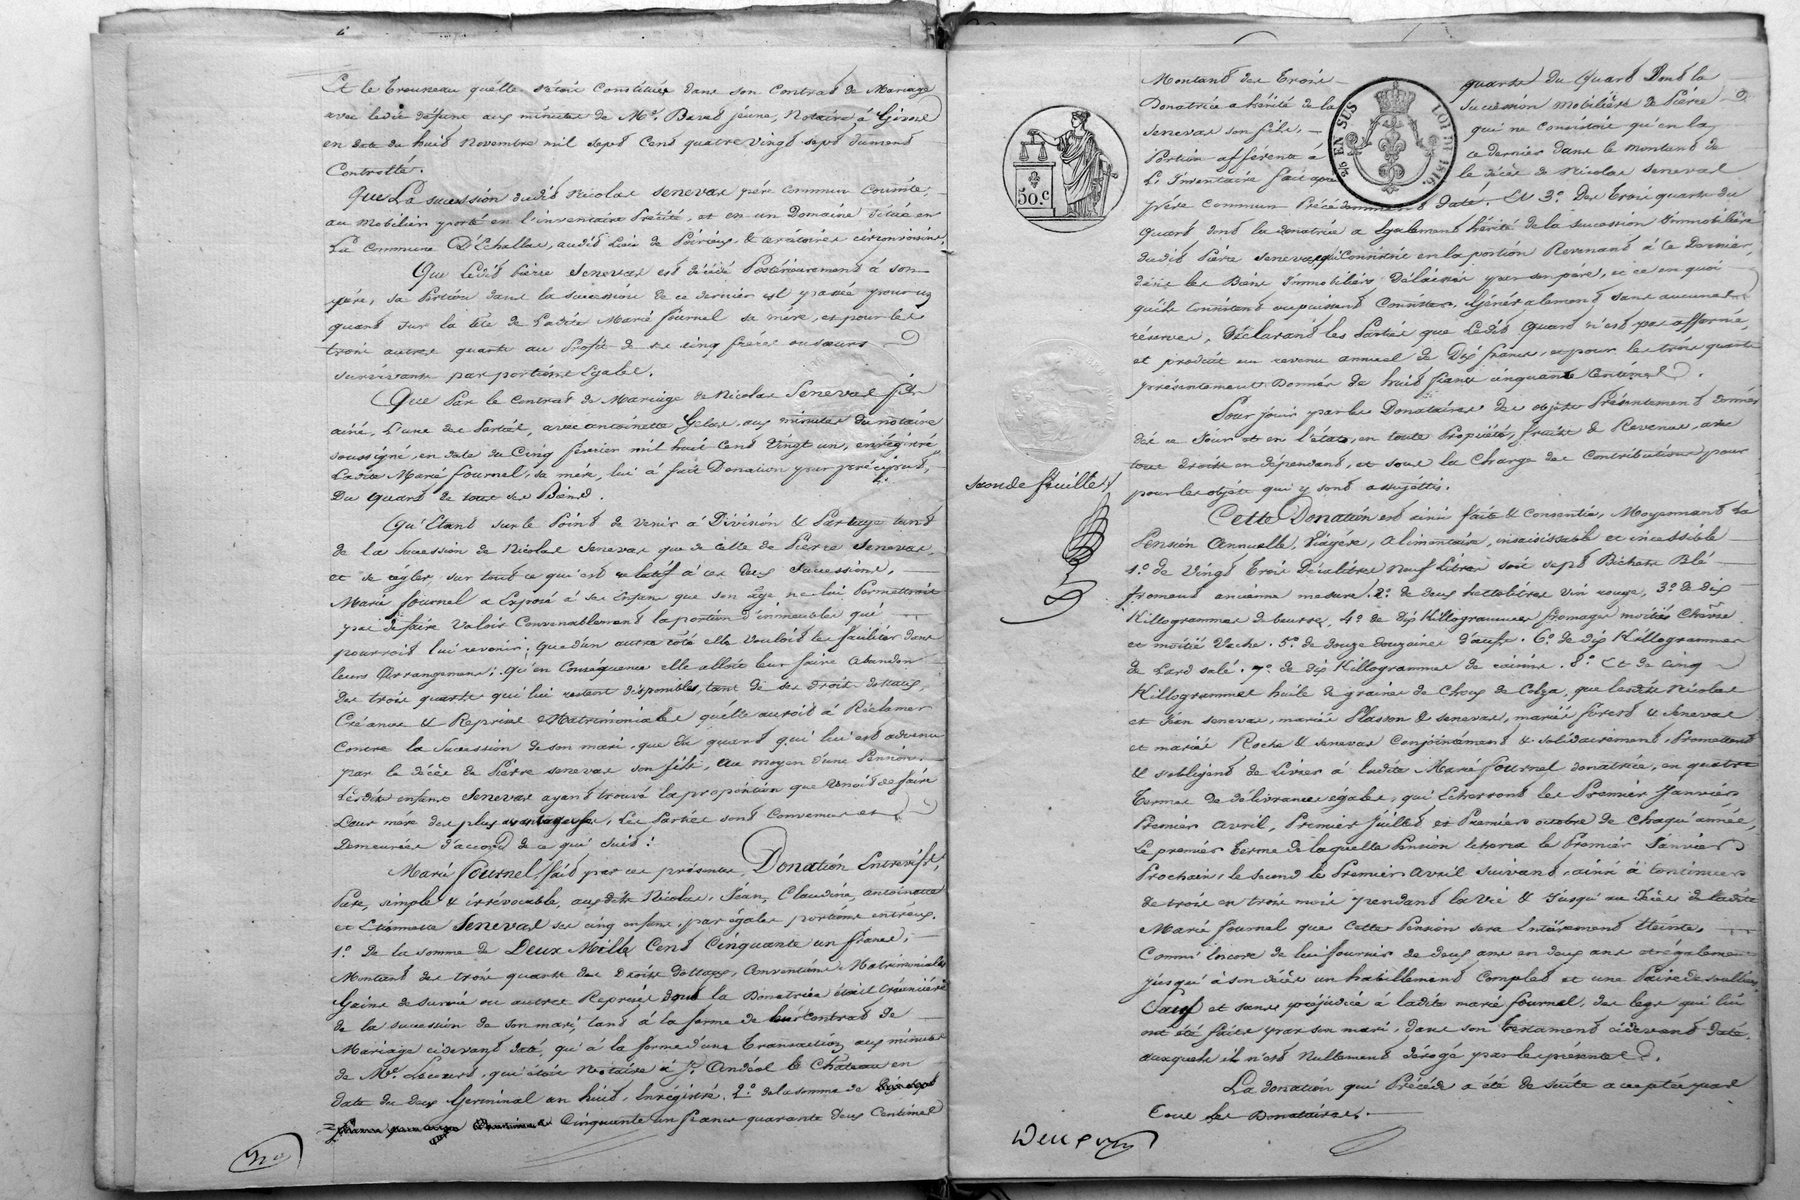 Et le trousseau quélle s'étoit Constituée dans son Contrad de Mariage
avec ledit défunt aux minutes de Me. Barod jeune, Notaire à Givors
en date du huit Novembre mil sept Cent quatre vingt sept dument
Controllé.
Que La succession dudit Nicolas Seneval père Commun Consiste
au Mobilier porté en l'inventaire Précité, et en un Domaine Situé en
La Commune D'Echallas, audit Lieu de & territoires circonvoisins.
Que Ledit Pierre Seneval est décédé Postérieurement à son
père, sa Portion dans la succession de ce dernier est passée pour un
quard sur la tête de Ladite Marie fournel sa mère, et pour les
trois autres quarts au Profit de ses cinq frères ou sœurs
survivants par portions Egales.
Que Par le Contrad de Mariage de Nicolas Seneval fils
ainé, L'une des Parties, avec antoinette Gelas, aux minutes du notaire
soussigné, en date du Cinq février mil huit Cent Vingt un, enrégistré
Ladite Marie fournel, sa mère, lui à fait Donation par préciput,
Du quard de tous ses Biens.
Qu'Etant sur le Point de venir à Division & Partage tant
de la Succession de Nicolas Seneval que de celle de Pierre Seneval,
et se régler sur tout ce qui est relatif à ces Deux Successions,
Marie fournel a Exposé à ses Enfans que son âge ne lui Permettroit
pas de faire Valoir Convenablement la portion d'immeubles qui
pourroit lui revenir; que d'un autre côté elle Vouloit les faciliter dans
leurs Arrangemens; Qu'en Conséquence elle alloit leur faire Abandon
des trois quarts qui lui restent disponibles, tant de ses droits dottaux,
Créances & Reprises Matrimoniales quélle auroit à Réclamer
Contre la Succession de son mari, que du quard qui lui est advenu
par le décès de Pierre seneval son fils, au moyen d'une Pension.
Lesdits enfans Seneval ayant trouvé la proposition que Venoit de faire
Leur mère des plus avantageuses, Les Parties sont Convenues et
Demeurées d'accord de ce qui Suit:
Marie fournel, fait par ces présentes, Donation Entrevifs,
Pure, simple & irrévocable, auxdits Nicolas, Jean, Claudine, antoinette
et Etiennette Seneval ses cinq enfans, par égales portions entréux.
1o. De la somme de Deux Mille Cent Cinquante un francs,
Montant des trois quarts des Droits dottaux, Conventions Matrimoniales
Gains de Survie ou autres Reprises dont la Donatrice étoit Créancière
de la succession de son mari, tant à la forme de leur Contrad de
Mariage cidevant daté, qu'à la forme d'une Transaction aux minutes
de Me. qui étoit Notaire à St. Andéol le Château en
date du deux Germinal an huit, Enrégistré. 2o. de la somme de
Cinquante un francs quarante deux Centimes
Montant des Trois quarts du Quard Dont la
Donatrice a hérité de la succession mobilière de Pierre
Seneval son fils, qui ne Consistoit qu'en la
Portion afférente à ce dernier dans le montant de
L'Inventaire fait après le décès de Nicolas Seneval
père Commun Précédemment daté. Et 3o. Des Trois quarts du
Quard dont la donatrice a Egalement hérité de la succession Immobilière
dudit Pierre Seneval, qui Consiste en la portion Revenant à ce Dernier
dans les Biens Immobiliers Délaissés par son père, et ce en quoi
qu'ils Consistent ou puissent Consister, Généralement sans aucunes
réserves, Déclarant les Parties que Ledit Quard n'est pas affermé,
et produit un revenu annuel de Dix francs, et pour les trois quarts
présentement Donnés de huit francs cinquante Centimes.
Pour jouir par les Donataires des objets Présentement donnés
dès ce Jour et en l'état, en toute Propriété, fruits & Revenus, avec
tous droits en dépendant, et sous la Charge des Contributions pour
pour les objets qui y sont assujettis.
Cette Donation est ainsi faite & Consentie, Moyennant La
Pension Annuelle, Viagère, Alimentaire, insaisissable et incessible
1o. de Vingt Trois Décalitres Neuf Litres soit sept Bichets Blé
froment ancienne mesure. 2o. de deux hectolitres vin rouge, 3o. de dix
Killogrammes de beurre, 4o. de Dix Killogrammes fromages moitié Chèvre
et moitié Vache. 5o. de douze douzaines d'œufs. 6o. de dix Killogrammes
de Lard salé. 7o. de dix Killogrammes de raisins. 8o. Et de Cinq
Killogrammes huile de graines de Choux de Colza, que lesdits Nicolas
et Jean seneval, mariés Plasson & seneval, mariés foret & Seneval
et mariés Roche & seneval Conjointement & solidairement Promettent
& s'obligent de Livrer à ladite Marie fournel donatrice, en quatre
termes de délivrances égales, qui Echerront les Premier Janvier
Premier Avril, Premier Juillet et Premier octobre de Chaqu'année,
Le premier terme de laquelle Pension écherra le Premier Janvier
Prochain, le second le Premier Avril Suivant, ainsi à Continuer
de trois en trois mois pendant la Vie & Jusqu'au décès de Ladite
Marie fournel que Cette Pension sera Entièrement Eteinte,
Comme Encore de lui fournir de deux ans en deux ans et également
jusqu'à son décès un habillement Complet et une Paire de souliers,
Sauf et sans préjudice à ladite marie fournel, des legs qui lui
ont été faits par son mari, dans son Testament cidevant daté
auxquels il n'est Nullement dérogé par les présentes.
La donation qui Précède a été de suite acceptée par
tous les Donataires.
50.C
EN SUS
LOI DE 1816.
seconde feuille